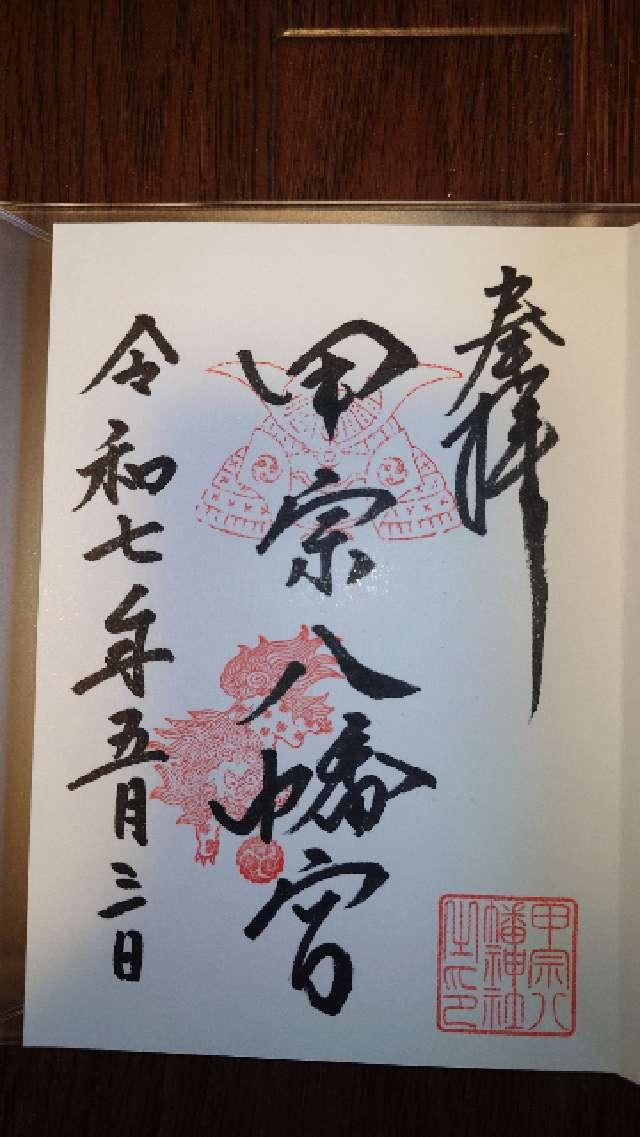 奉拝
甲宗八幡宮
令和七年五月三日
甲宗八
幡神社
之印